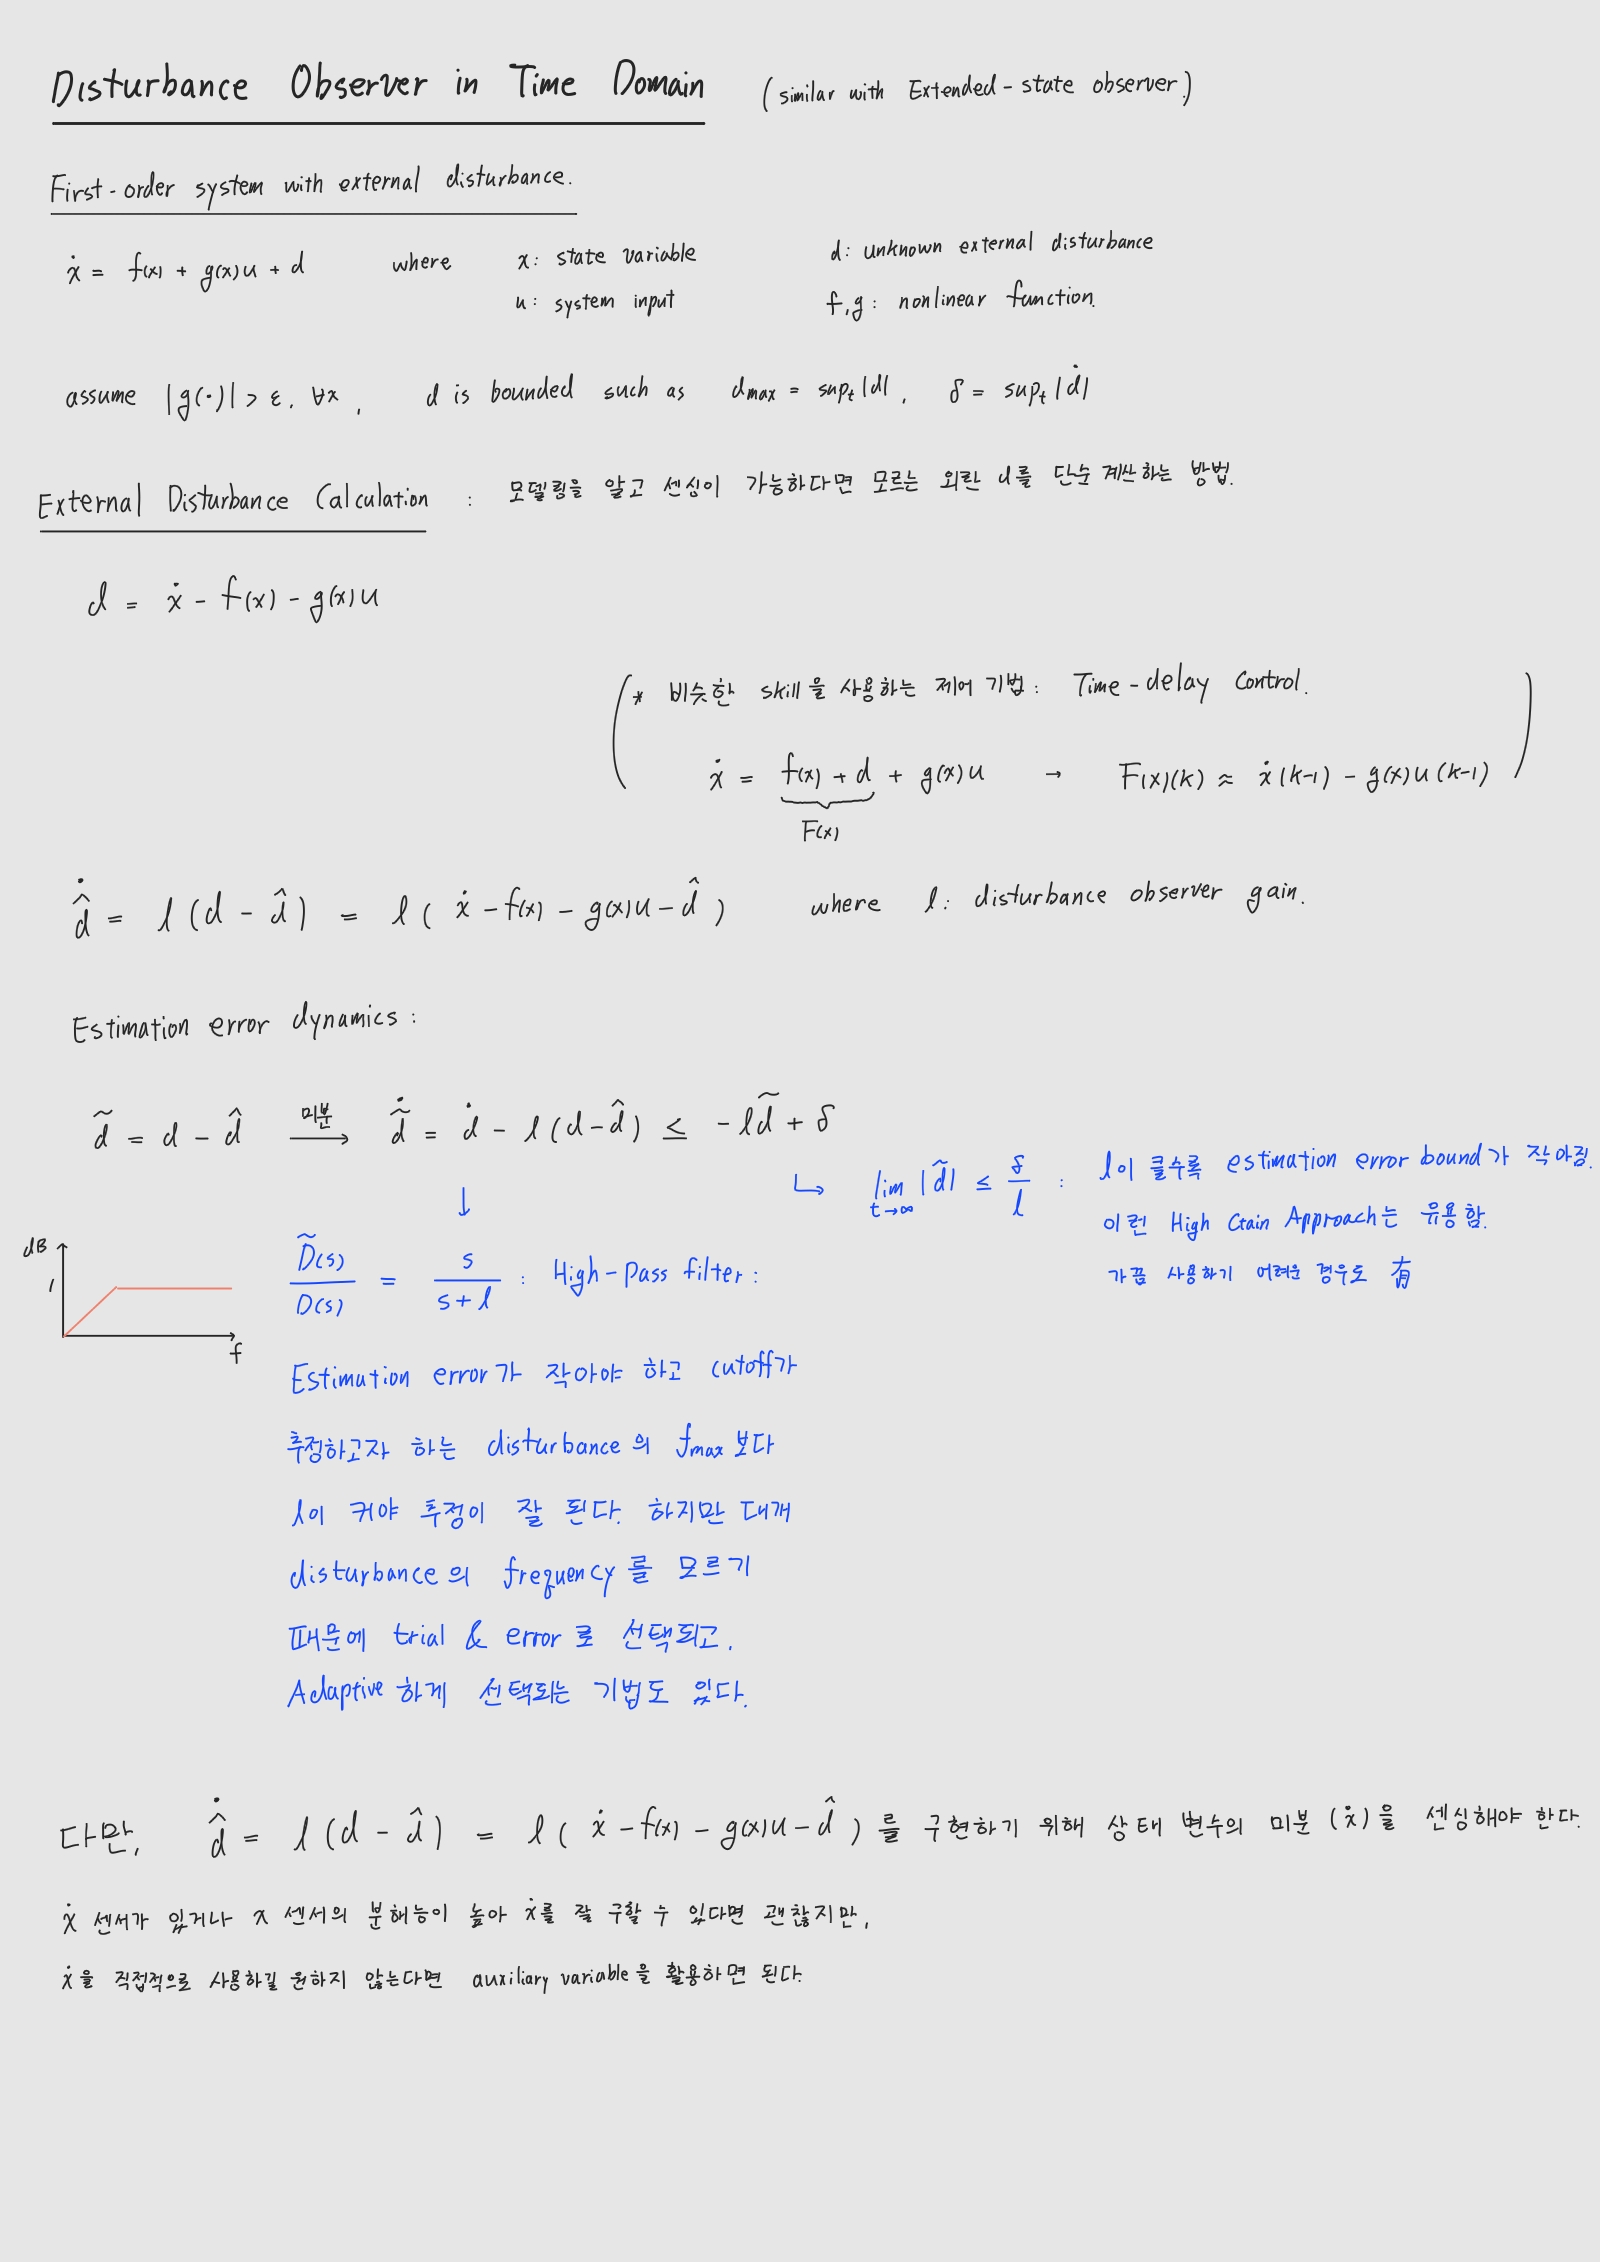 Disturbance Observer in Time Domain (similar with Extended-state observer.)
First-order system with external disturbance.
ẋ = f(x) + g(x)u + d where x: state variable d: unknown external disturbance
u: system input f,g: nonlinear function.
assume |g(·)| > ε. ∀x, d is bounded such as d_max = sup_t |d|, δ = sup_t |ḋ|
External Disturbance Calculation : 모델링을 알고 센싱이 가능하다면 모르는 외란 d를 단순 계산하는 방법.
d = ẋ - f(x) - g(x)u
* 비슷한 skill을 사용하는 제어 기법: Time-delay Control.
ẋ = f(x) + d + g(x)u → F(x)(k) ≈ ẋ(k-1) - g(x)u(k-1)
F(x)
d̂̇ = l(d - d̂) = l(ẋ - f(x) - g(x)u - d̂) where l: disturbance observer gain.
Estimation error dynamics:
d̃ = d - d̂ 미분 → d̃̇ = ḋ - l(d-d̂) ≤ -ld̃ + δ
↳ lim t→∞ |d̃| ≤ δ/l : l이 클수록 estimation error bound가 작아짐.
이런 High Gain Approach는 유용함.
가끔 사용하기 어려운 경우도 有
↓
dB
1
f
D̃(s)/D(s) = s/(s+l) : High-pass filter:
Estimation error가 작아야 하고 cutoff가
추정하고자 하는 disturbance의 f_max 보다
l이 커야 추정이 잘 된다. 하지만 대개
disturbance의 frequency를 모르기
때문에 trial & error로 선택되고,
Adaptive하게 선택되는 기법도 있다.
다만, d̂̇ = l(d - d̂) = l(ẋ - f(x) - g(x)u - d̂)를 구현하기 위해 상태 변수의 미분(ẋ)을 센싱해야 한다.
ẋ 센서가 있거나 x 센서의 분해능이 높아 ẋ를 잘 구할 수 있다면 괜찮지만,
ẋ을 직접적으로 사용하길 원하지 않는다면 auxiliary variable을 활용하면 된다.